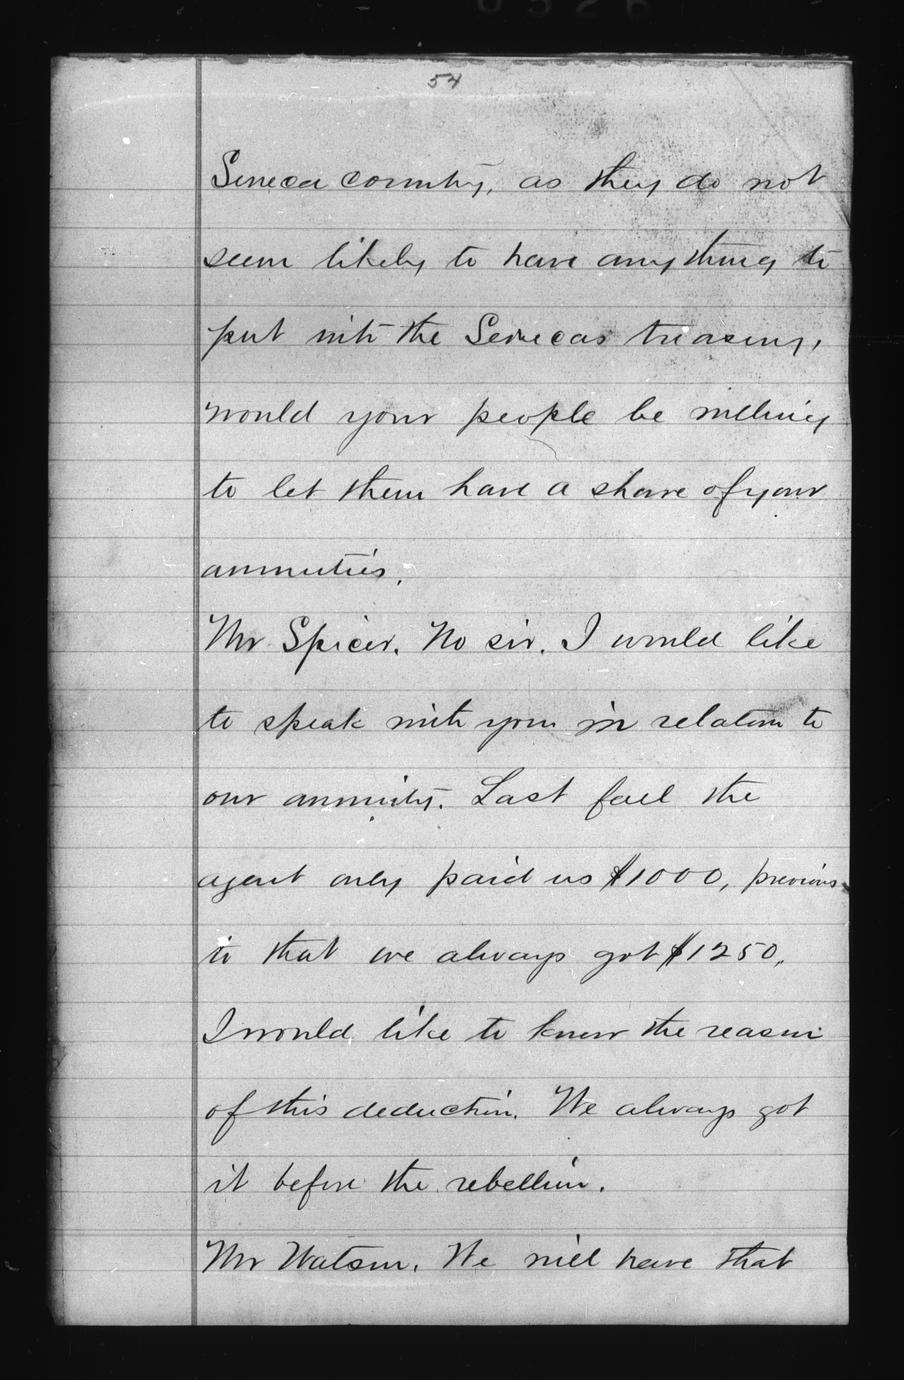 54
Seneca country, as they do not
seem likely to have anything to
put into the Senecas treasury,
would your people be willing
to let them have a share of your
annuities.
Mr Spicer. No sir. I would like
to speak with you in relation to
our annuity. Last fall the
agent only paid us $1000, previous
to that we always got $1250.
I would like to know the reason
of this deduction. We always got
it before the rebellion.
Mr Watson. We will have that